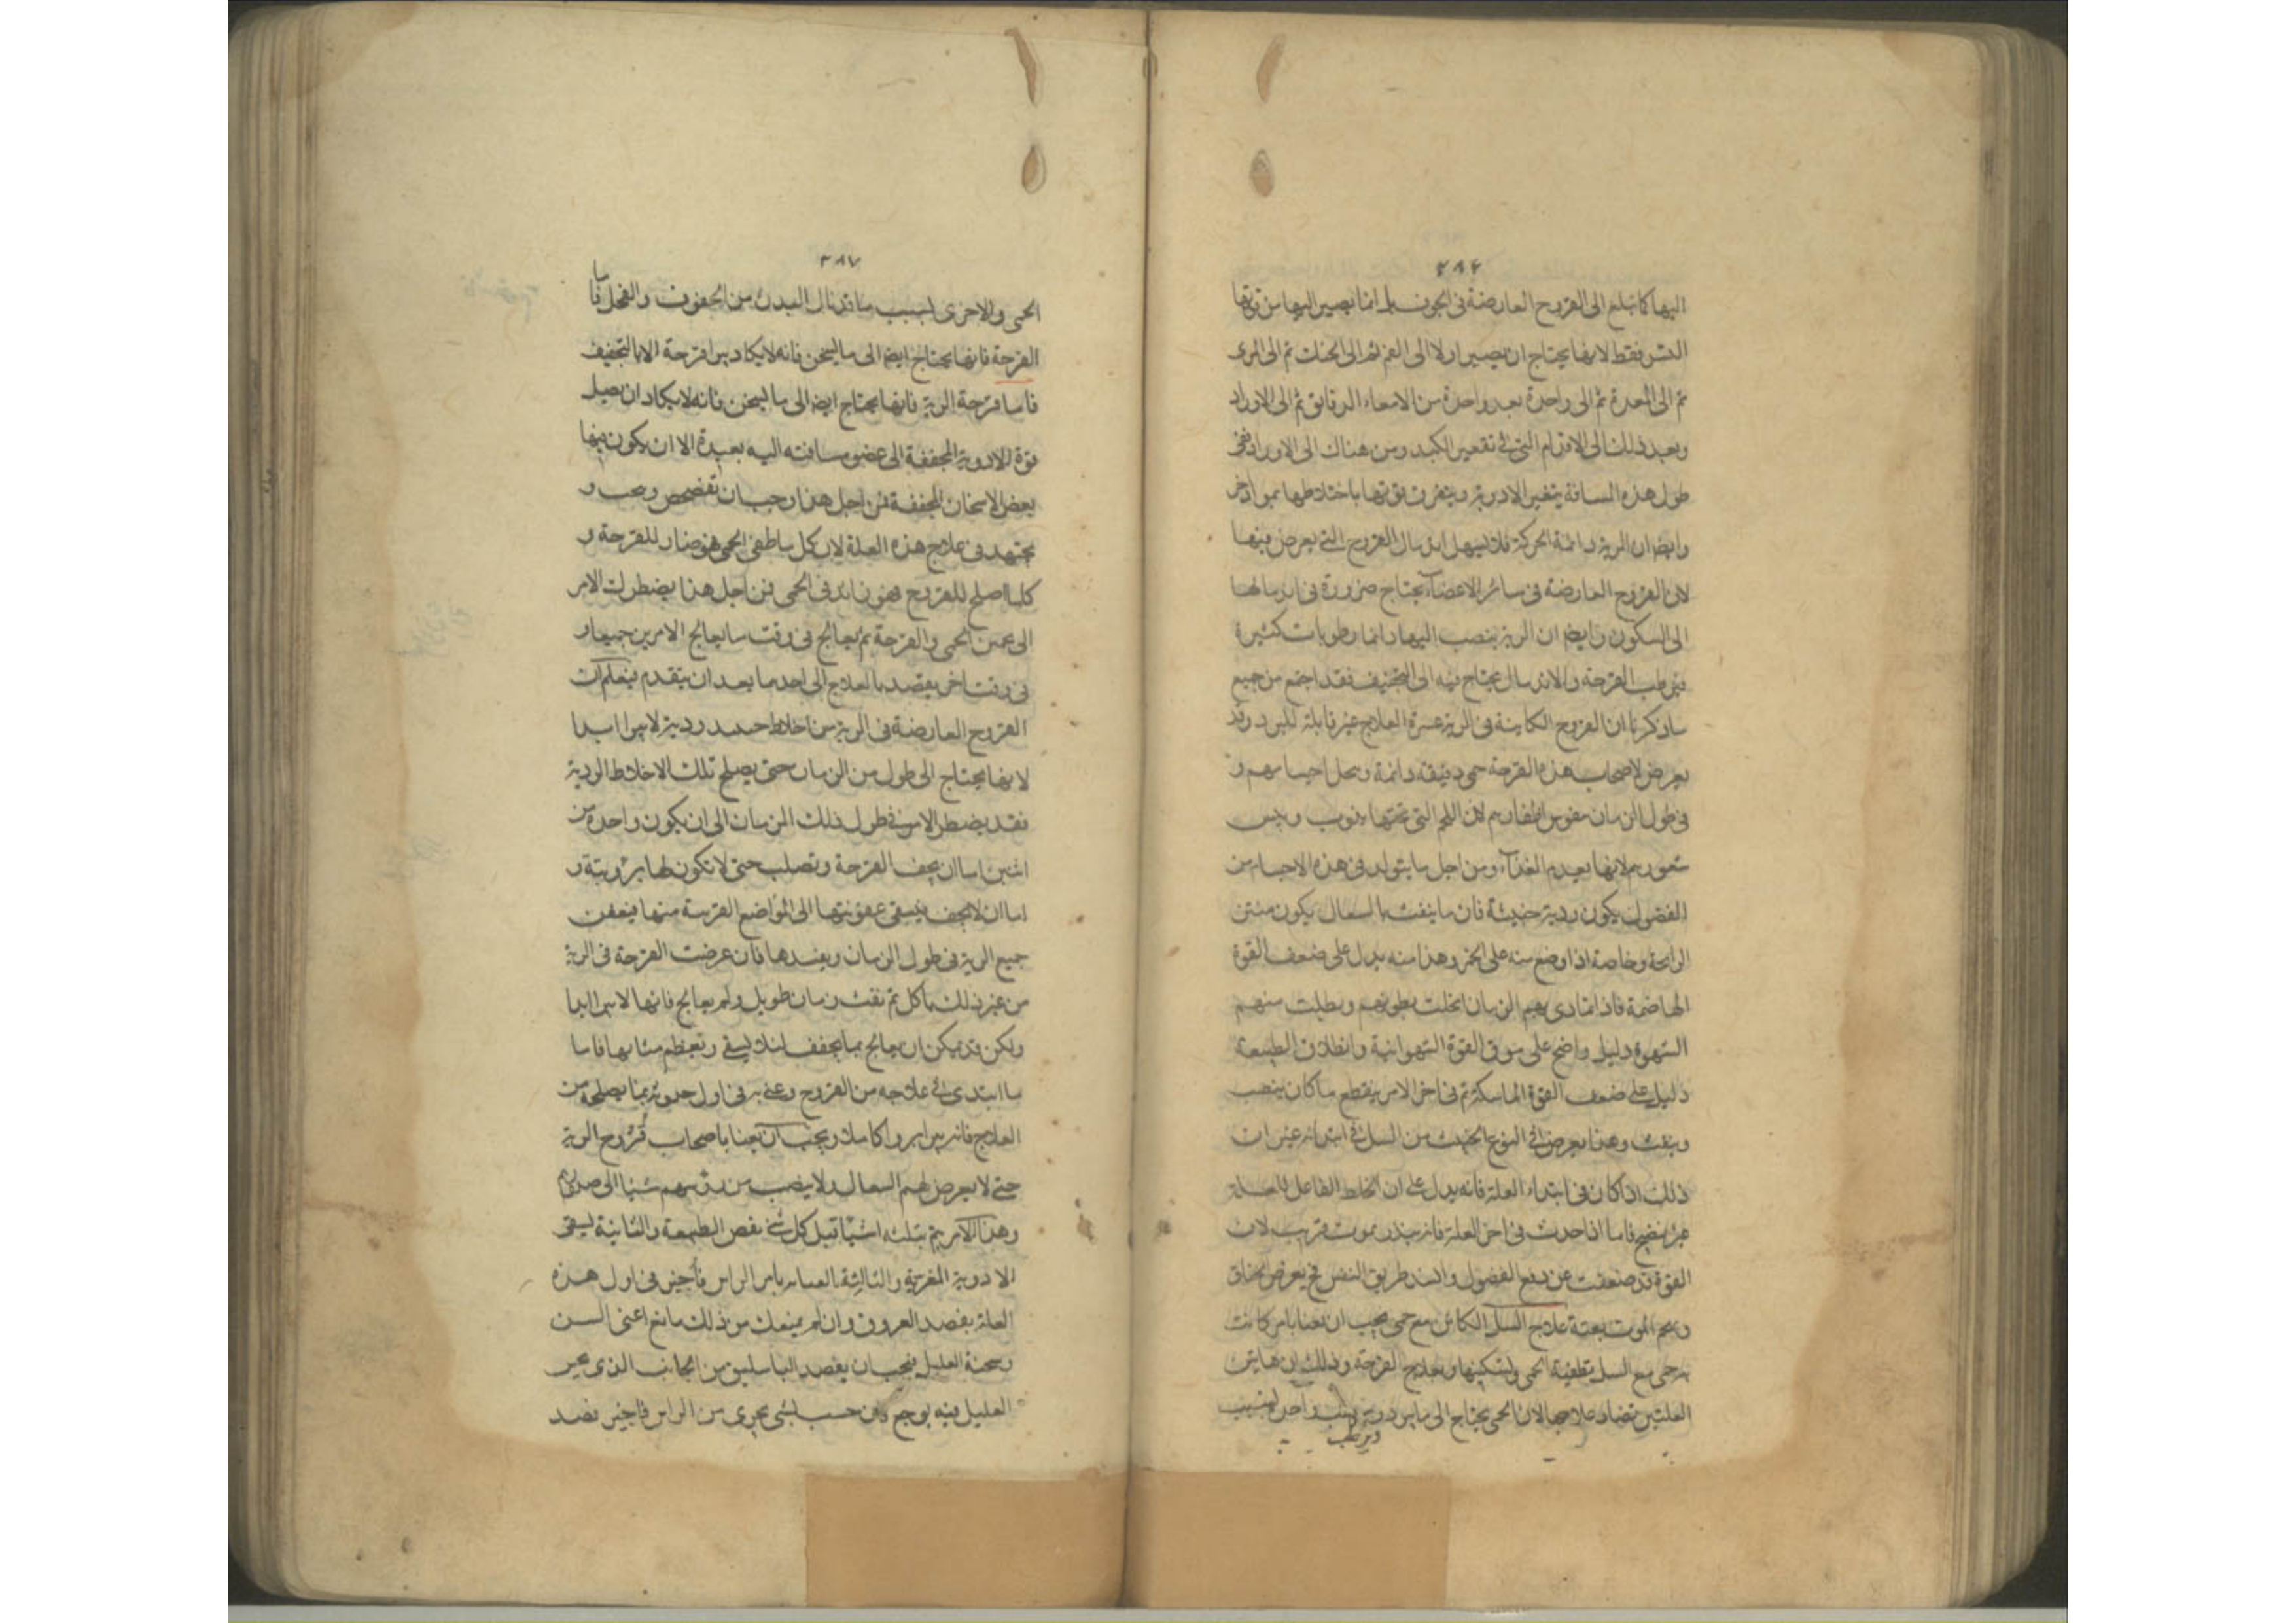 ٢٨٦
اليها كما تبلغ الى القروح العارضة فى الجوف بل انما يصير اليها من قوتها
الشئ فقط لانها يحتاج ان يصير اولا الى الفم ثم الى الحنك ثم الى المرى
ثم الى المعدة ثم الى واحدة بعد واحدة من الامعاء الدقاق ثم الى الاوراد
وبعد ذلك الى الاقسام التى فى تقعير الكبد ومن هناك الى الاوراد ففى
طول هذه المسافة يتغير الادوية ويتفرق قوتها باختلاطها بمواد اخر
وايضا ان الرية دائمة الحركة فلا يسهل اندمال القروح التى يعرض فيها
لان القروح العارضة فى سائر الاعضاء يحتاج ضرورة فى اندمالها
الى السكون وايضا ان الرية ينصب اليها دائما رطوبات كثيرة
فيرطب القرحة والاندمال يحتاج فيه الى التجفيف فقد اجتمع من جميع
ما ذكرنا ان القروح الكاينة فى الرية عسرة العلاج غير قابلة للبرء وقد
يعرض لاصحاب هذه القرحة حمى دقيقة دائمة ونحل اجسامهم و
فى طول الزمان تقوس اظفارهم لان اللحم التى تحتها يذوب ويبس
شعورهم لانها يعدم الغذاء ومن اجل ما يتولد فى هذه الاجسام من
الفضول يكون ردية خبيثة فان ما ينفث بالسعال يكون منتن
الرائحة وخاصة اذا وضع منه على الجمر وهذا منه يدل على ضعف القوة
الهاضمة فاذا تمادى بهم الزمان انحلت بطونهم وبطلت منهم
الشهوة دليل واضح على موت القوة الشهوانية وانطلاق الطبيعة
دليل على ضعف القوة الماسكة ثم فى اخر الامر ينقطع ما كان ينصب
وينفث وهذا يعرض فى النوع الخبيث من السل فى ابتدائه غير ان
ذلك اذا كان فى ابتداء العلة فانه يدل على ان الخلط الفاعل للعلة
غير نضيج فاما اذا حدث فى اخر العلة فانه ينذر بموت قريب لان
القوة قد ضعفت عن دفع الفضول وانسد طريق النفس فيعرض خناق
وهجم الموت بغتة علاج السل الكائن مع حمى يجب ان يعنا بامر كانت
به حمى مع السل بتطفية الحمى وتسكينها وبعلاج القرحة وذلك ان هاتين
العلتين تضاد علاجهما لان الحمى يحتاج الى ما يبرد ويرطب واحد لسبب
ويرطب
٢٨٧
الحمى والاخرى لسبب ما قد نال البدن من الجفوف والقحل فاما
القرحة فانها يحتاج ايضا الى ما يسخن فانه لا يكاد يبرا قرحة الا بالتجفيف
فاما قرحة الرية فانها يحتاج ايضا الى ما يسخن فانه لا يكاد ان يصل
قوة الادوية المجففة الى عضو مسافته اليه بعيدة الا ان يكون فيها
بعض الاسخان المجففة فمن اجل هذا وجب ان تفحص وتحب و
يجتهد فى علاج هذه العلة لان كل ما طفى الحمى فهو ضار للقرحة و
كلما اصلح للقروح فهو زائد فى الحمى فمن اجل هذا يضطرك الامر
الى الحمى والقرحة ثم يعالج فى وقت ما يعالج الامرين جميعا و
فى وقت اخر يقصد بالعلاج الى احدهما بعد ان يتقدم فيعلم ان
القروح العارضة فى الرية من اخلاط ردية لا يبرا ابدا
لانها يحتاج الى طول من الزمان حتى يصلح تلك الاخلاط الردية
فقد يضطر الامر فى طول ذلك الزمان الى ان يكون واحدة من
اثنين اما ان يجف القرحة وتصلب حتى لا تكون لها برؤ بتة و
اما ان لا يجف فيسعى عفونتها الى المواضع القريبة منها فيعفن
جميع الرية فى طول الزمان ويفسدها فان عرضت القرحة فى الرية
من غير ذلك ثم نفث زمان طويل ولم يعالج فانها لا يبرا ابدا
ولكن قد يمكن ان يعالج بما يجفف لئلا يسعى وتعظم فاما
ما ابتدى فى علاجه من القروح وعنى به فى اول حدوثه بما يصلحه من
العلاج فانه يبرا برءا كاملا ويجب ان يعنا باصحاب قروح الرية
حتى لا يعرض لهم السعال ولا ينصب من رؤسهم شيئا الى صدورهم
وهذا الامر يتم بثلثه اشياء قبل كل شى نفض الطبيعة والثانية يسقى
الادوية المغرية والثالثة العناية بامر الراس فاجتن فى اول هذه
العلة بفصد العروق وان لم يمنعك من ذلك مانع اعنى السن
وسحنة العليل فيجب ان يفصد الباسليق من الجانب الذى يحس
العليل فيه بوجع ومن حسب بشى يجرى من الراس فاجتن فصد